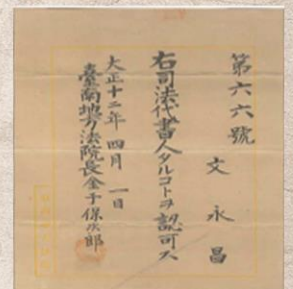 第六六號
文永昌
右司法代書人タルコトヲ認可ス
大正十二年四月一日
臺南地方法院長金子保次郎